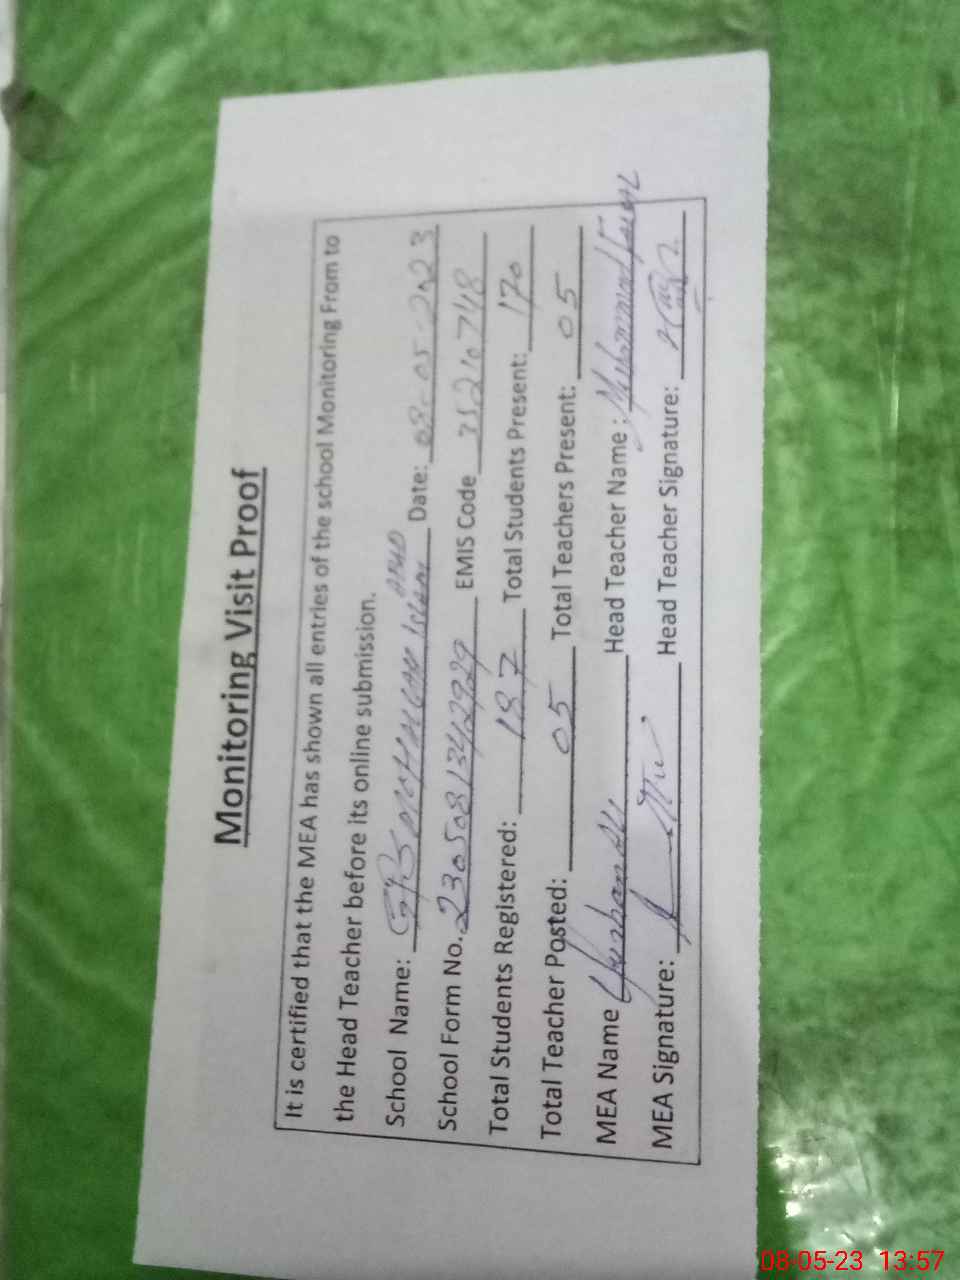 Monitoring Visit Proof
It is certified that the MEA has shown all entries of the school Monitoring From to
the Head Teacher before its online submission.
School Name: GPS Islam Date: 08-05-2023
School Form No. 2305081342929 EMIS Code 35210748
Total Students Registered: 187 Total Students Present: 170
Total Teacher Posted: 05 Total Teachers Present: 05
MEA Name Head Teacher Name : Muhammad
MEA Signature: Head Teacher Signature:
08-05-23 13:57